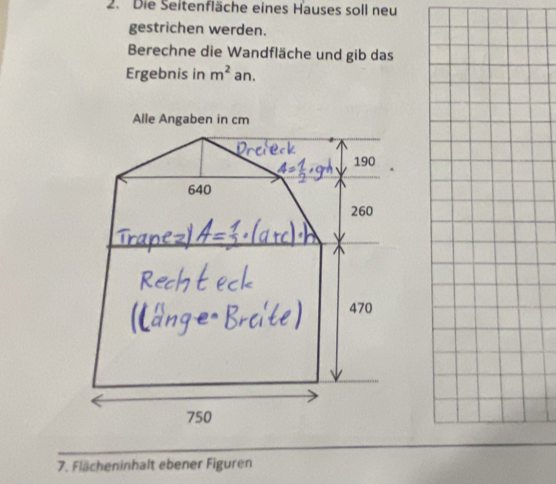 2. Die Seitenfläche eines Hauses soll neu
gestrichen werden.
Berechne die Wandfläche und gib das
Ergebnis in m² an.
Alle Angaben in cm
Dreieck
A=½·gh
190
640
260
Trapez) A=½·(a+c)·h
Rechteck
(Länge·Breite)
470
750
7. Flächeninhalt ebener Figuren